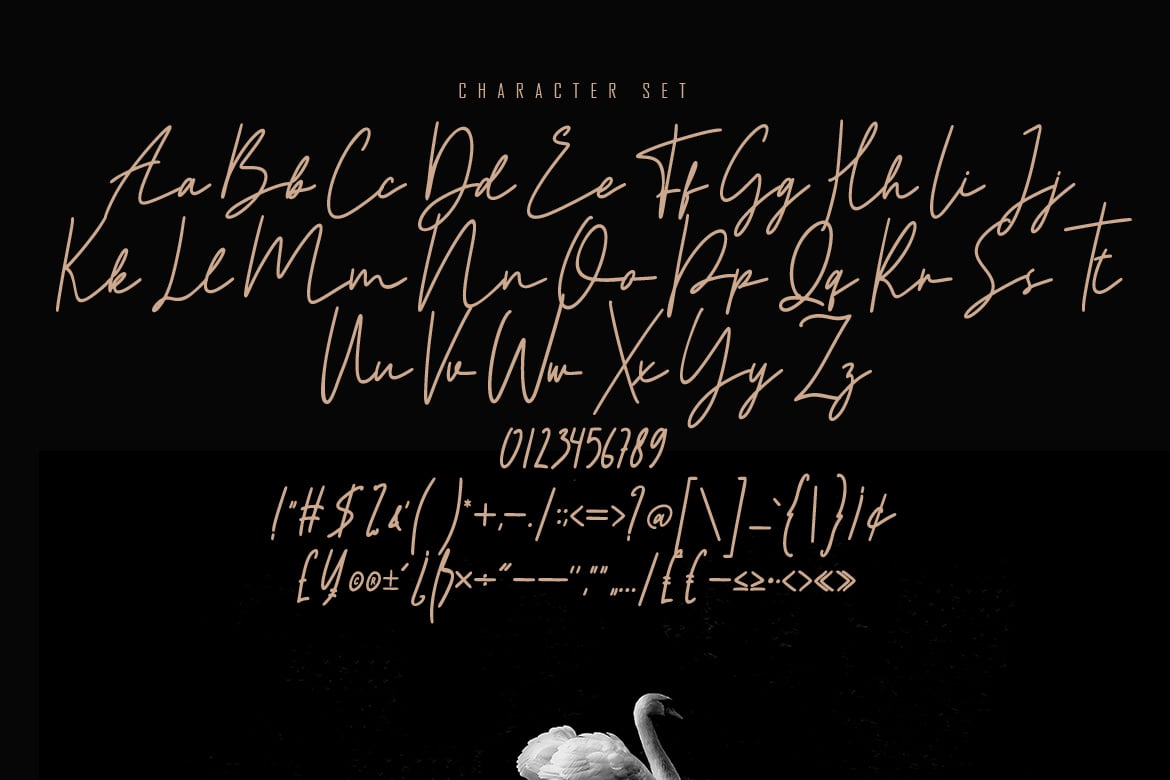 CHARACTER SET
Aa Bb Cc Dd Ee Ff Gg Hh Ii Jj
Kk Ll Mm Nn Oo Pp Qq Rr Ss Tt
Uu Vv Ww Xx Yy Zz
0123456789
!"#$%&'()*+,-./:;<=>?@[\]_`{|}¡¢
£¥©®±´¿ß×÷“–—‘’‚“”„…/₤€−≤≥··‹›«»